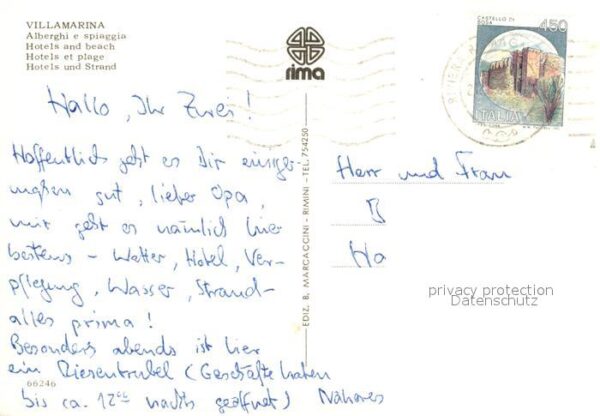 VILLAMARINA
Alberghi e spiaggia
Hotels and beach
Hotels et plage
Hotels und Strand
rima
CASTELLO DI
BOSA
450
ITALIA
RIVIERA
Hallo, Ihr Zwei!
Hoffentlich geht es Dir einiger-
maßen gut, lieber Opa,
mir geht es nämlich hier
bestens - Wetter, Hotel, Ver-
pflegung, Wasser, Strand-
alles prima!
Besonders abends ist hier
ein Riesentrubel (Geschäfte haben
bis ca. 12°° nachts geöffnet) Näheres
66246
EDIZ. B. MARCACCINI - RIMINI - TEL. 754250
Herr und Frau
B
Ha
privacy protection
Datenschutz